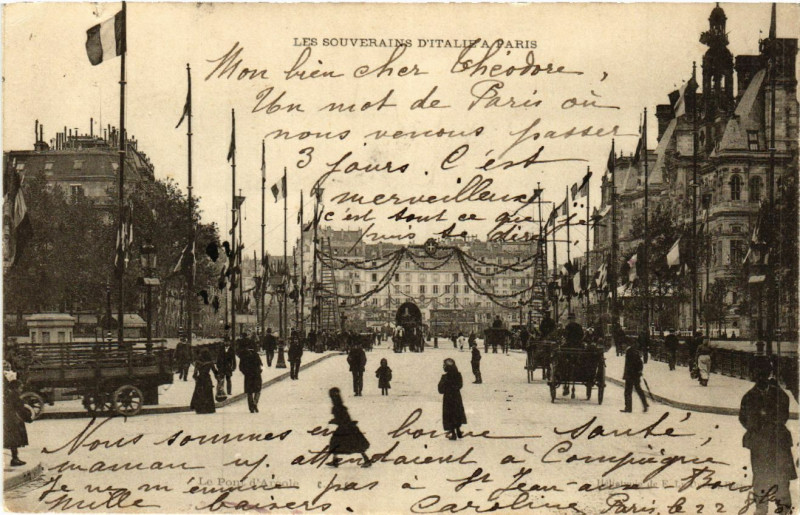 LES SOUVERAINS D'ITALIE A PARIS
Mon bien cher Théodore,
Un mot de Paris où
nous venons passer
3 jours. C'est
merveilleux
c'est tout ce que je
puis se dire
Nous sommes en bonne santé,
maman y attendaient à Compiègne
Le Pont d'Arcole
Je ne m'ennuie pas à St Jean-aux-Bois
Mille baisers. Caroline Paris. le 22